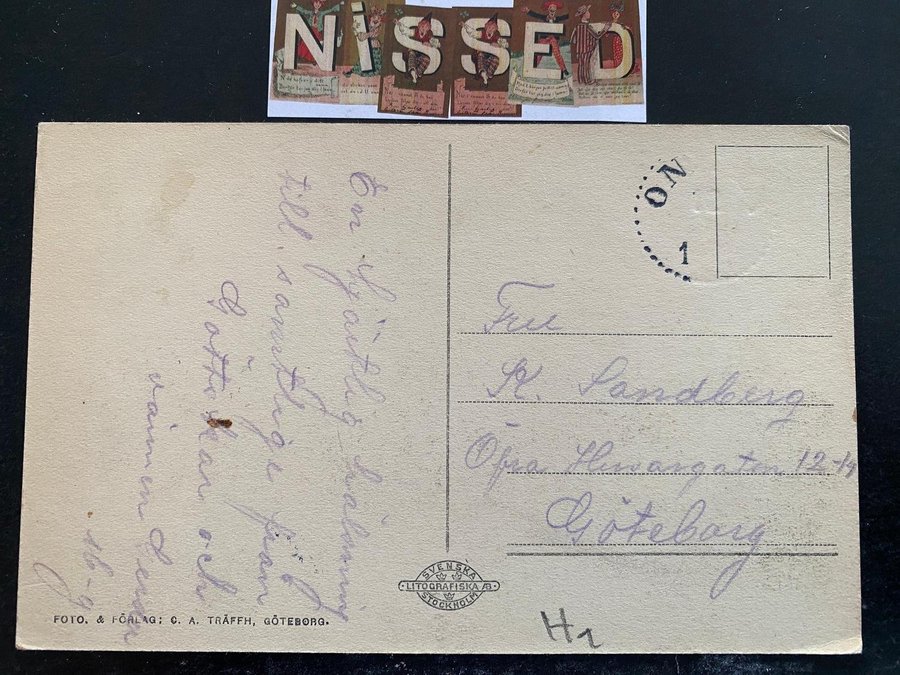 NiSSED
En hjärtlig hälsning
till samtlige från
Gottskär och
vännen
16-9
ON
1
Fru
K. Sandberg
Öfra Husargatan 12-14
Göteborg
SVENSKA
LITOGRAFISKA AB
STOCKHOLM
FOTO. & FÖRLAG: C. A. TRÄFFH, GÖTEBORG.
H1